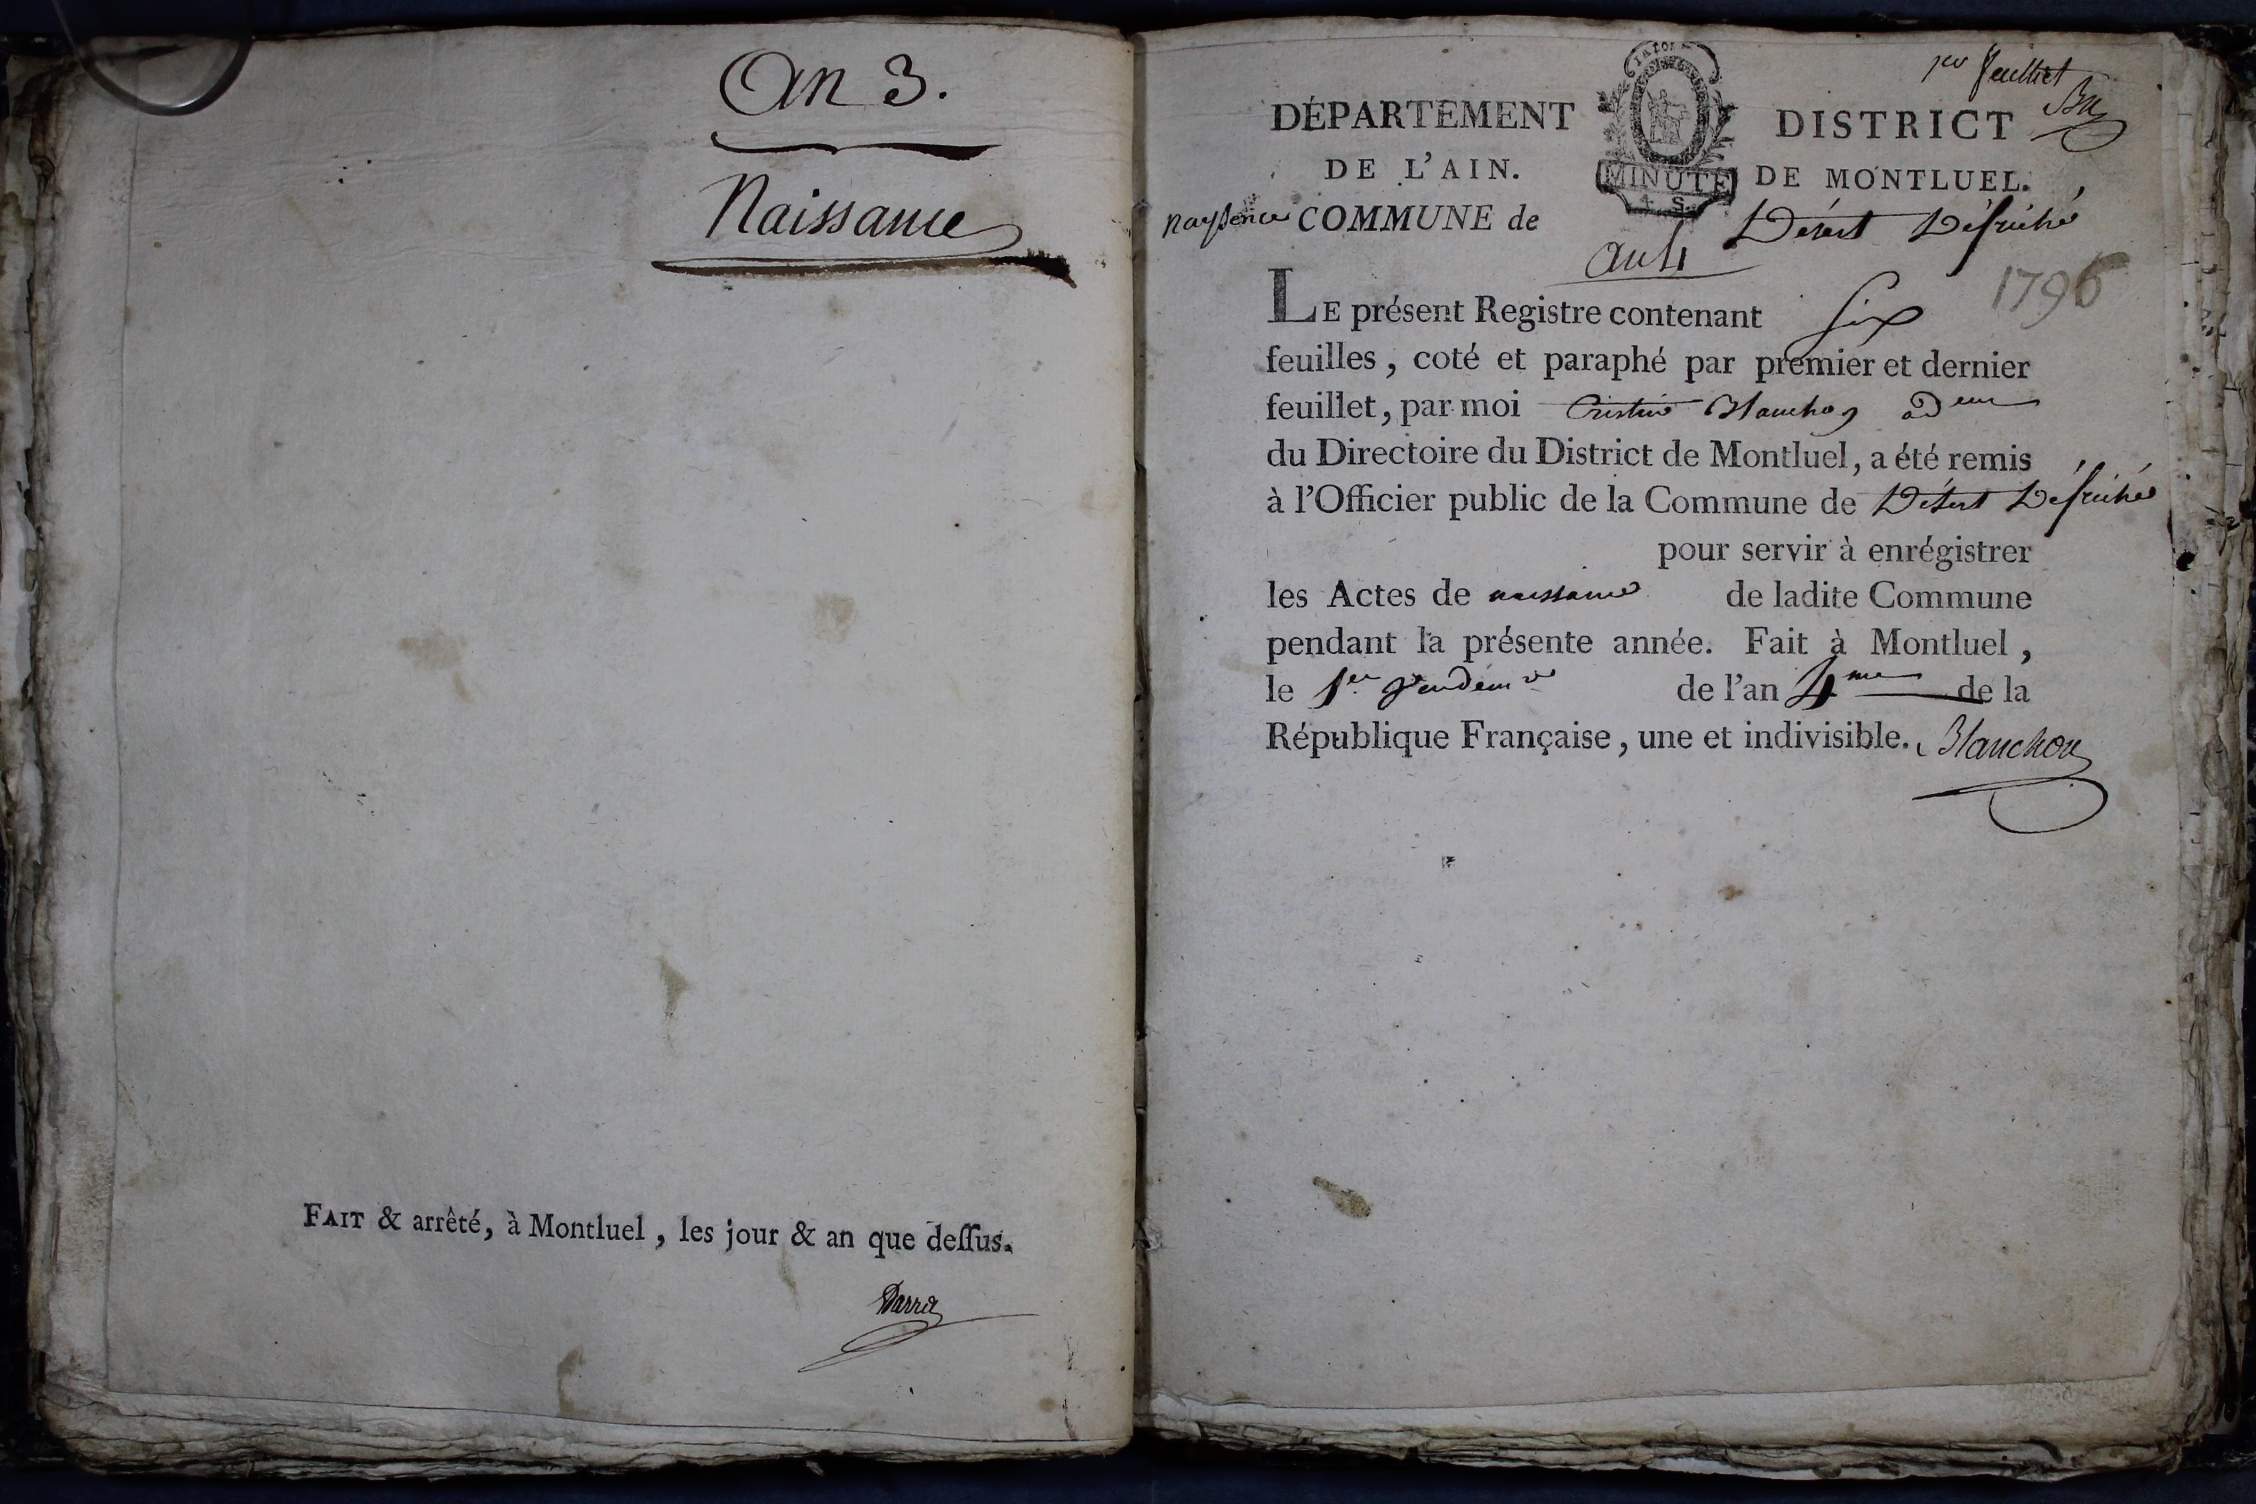 An 3.
Naissance
FAIT & arrêté, à Montluel, les jour & an que deſſus.
1er feuillet
DÉPARTEMENT
DE L'AIN.
MINUTE
4 S.
DISTRICT
DE MONTLUEL.
nayssence COMMUNE de Désert Défriché
an 4
1796
LE présent Registre contenant six
feuilles, coté et paraphé par premier et dernier
feuillet, par moi Blanchon adeur
du Directoire du District de Montluel, a été remis
à l'Officier public de la Commune de Désert Défriché
pour servir à enrégistrer
les Actes de naissance de ladite Commune
pendant la présente année. Fait à Montluel,
le 1er Vendemre de l'an 4me de la
République Française, une et indivisible. Blanchon